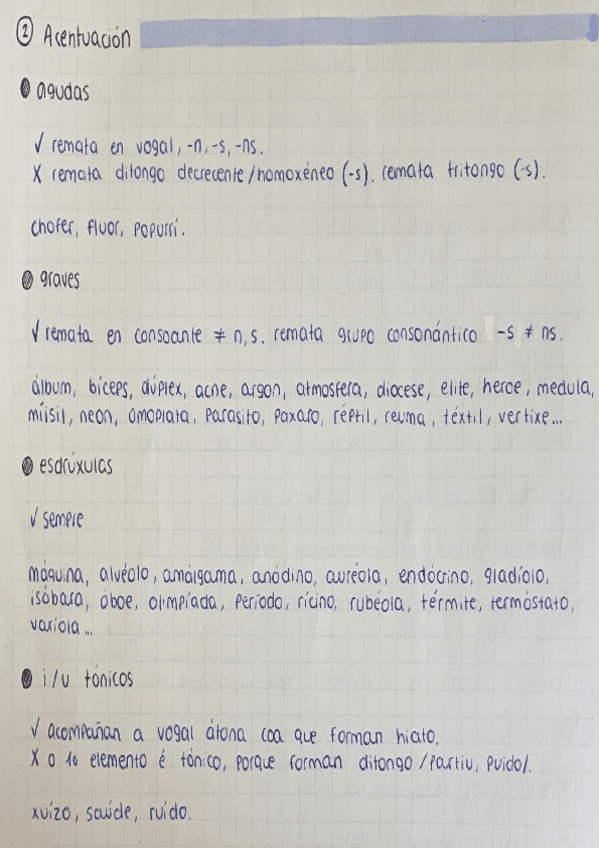 ② Acentuación
agudas
√ remata en vogal, -n, -s, -ns.
X remata ditongo decrecente/homoxéneo (-s). remata tritongo (-s).
chofer, fluor, popurrí.
graves
√ remata en consoante ≠ n, s. remata grupo consonántico -s ≠ ns.
álbum, bíceps, dúplex, acne, argon, atmosfera, diocese, elite, heroe, medula,
mísil, neon, omoplata, parasito, paxaro, réptil, reuma, téxtil, vertixe...
esdrúxulas
√ sempre
máquina, alvéolo, amálgama, anódino, auréola, endócrino, gladíolo,
isóbara, óboe, olimpíada, período, rícino, rubéola, térmite, termóstato,
varíola...
i/u tónicos
√ acompañan a vogal átona coa que forman hiato.
X o 1o elemento é tónico, porque forman ditongo /partiu, puido/.
xuízo, saúde, ruído.